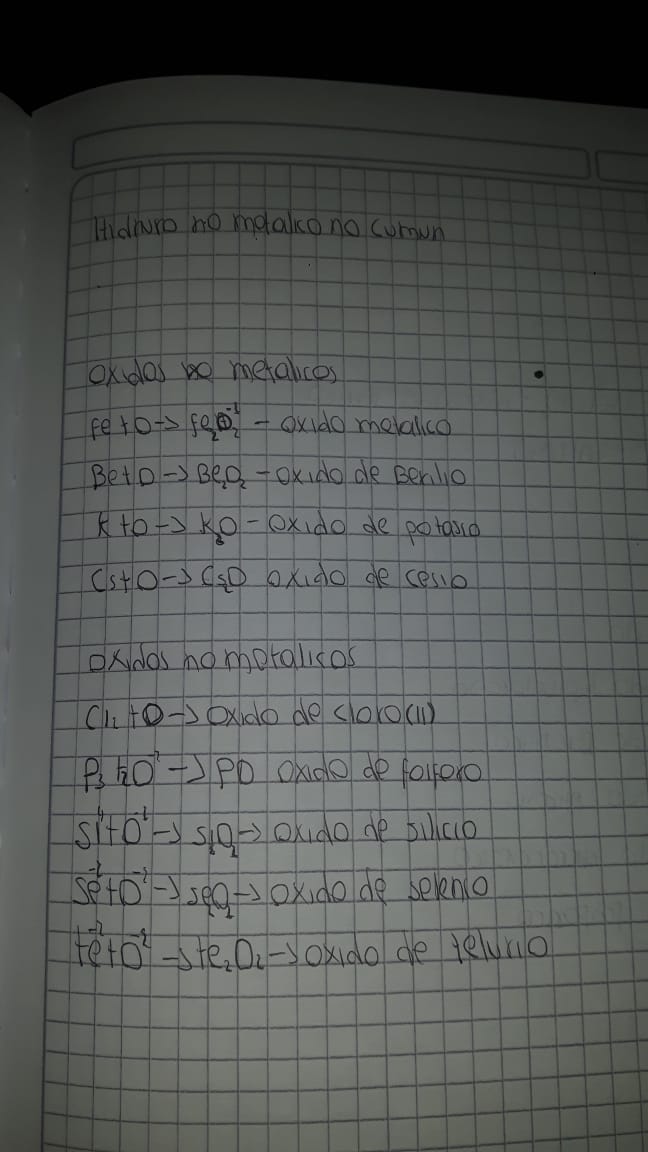 Hidruro no metalico no cumun
oxidos metalicos
Fe + O → Fe2O2⁻² - oxido metalico
Be + O → Be2O2 - oxido de Berilio
K + O → K2O - oxido de potasio
Cs + O → Cs2O oxido de cesio
oxidos no metalicos
Cl2 + O → oxido de cloro(II)
O⁻² → PO oxido de fosforo
Si + O⁻² → Si2O2 → oxido de silicio
Se⁻² + O⁻² → SeO2 → oxido de selenio
te⁻² + O⁻² → te2O2 → oxido de telurio